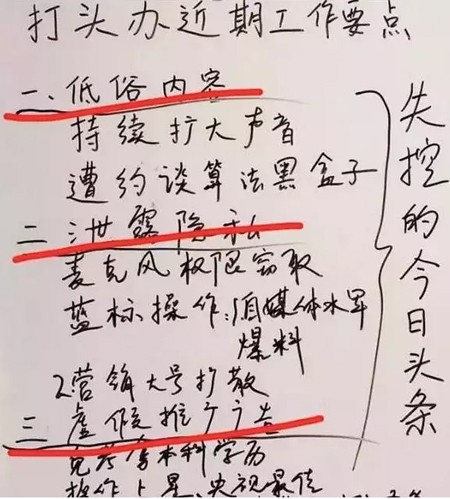 打头办近期工作要点
一、低俗内容
持续扩大声音
遭约谈算法黑盒子
二 泄露隐私
麦克风权限窃取
蓝标操作:1自媒体水军
爆料
2营销大号扩散
三 虚假推广广告
免考拿本科学历
操作上星、央视最佳
失控的今日头条